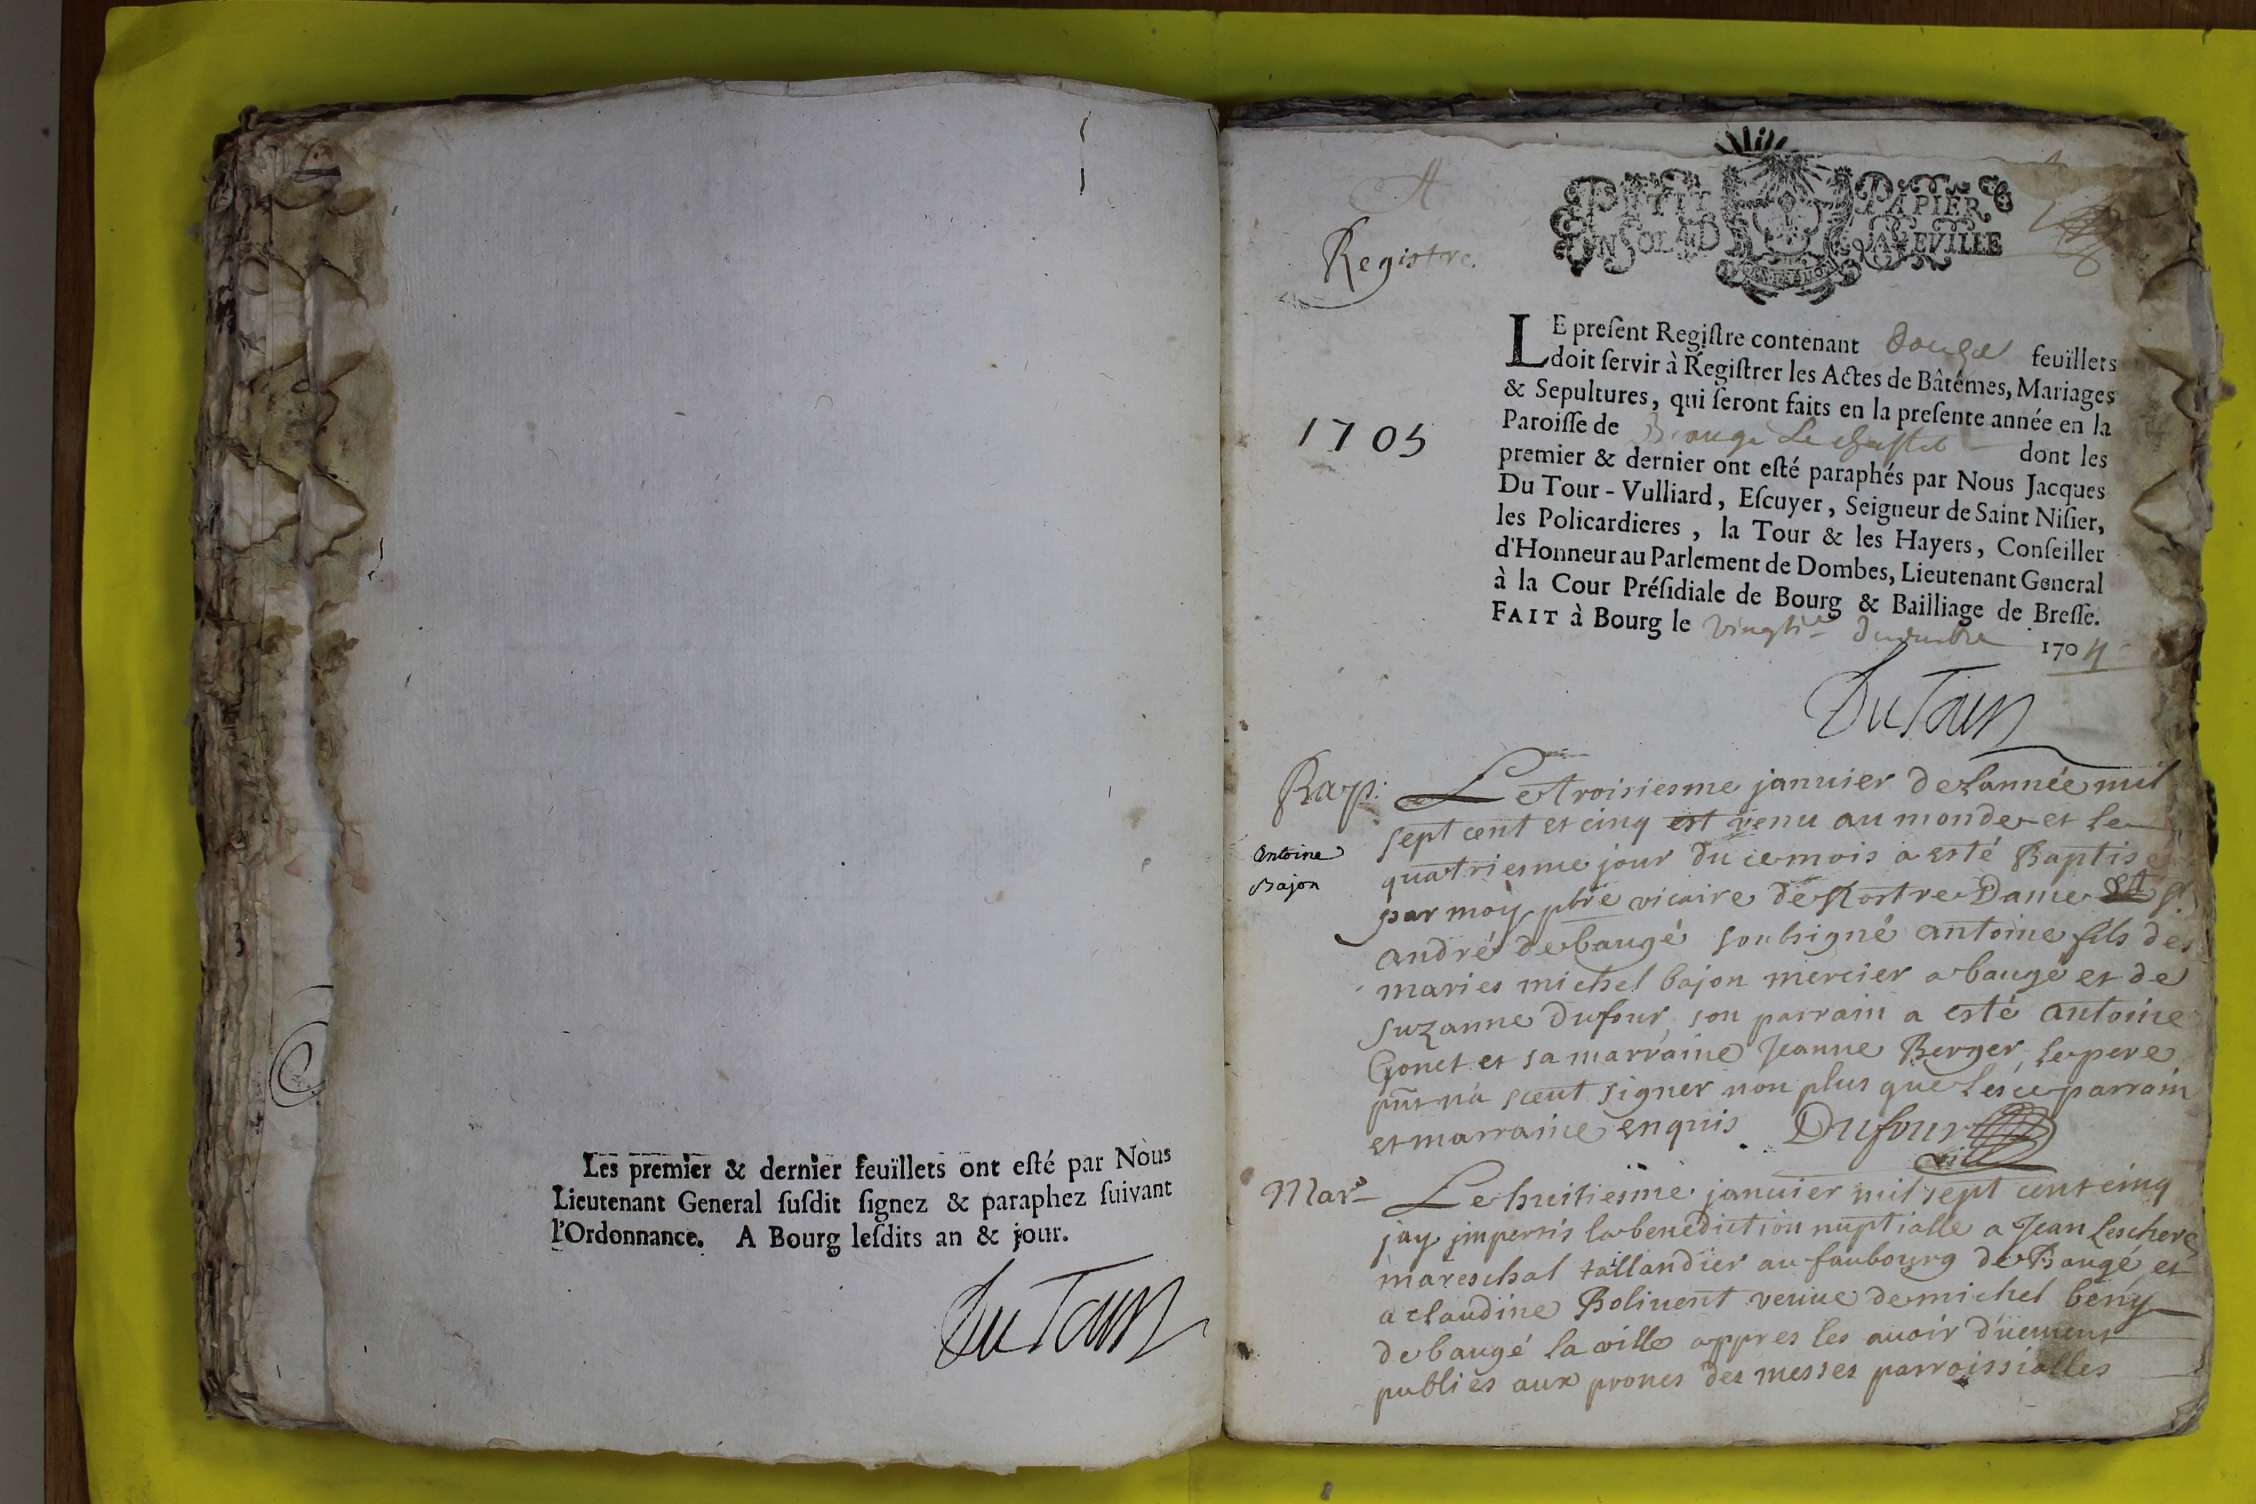 Les premier & dernier feuïllets ont eſté par Nous
Lieutenant General ſuſdit ſignez & paraphez ſuivant
l'Ordonnance. A Bourg leſdits an & jour.
DuTour
Registre.
PETIT PAPIER
UN SOL LA FEVILLE
1705
LE preſent Regiſtre contenant douze feuïllets
doit ſervir à Regiſtrer les Actes de Bâtêmes, Mariages
& Sepultures, qui ſeront faits en la preſente année en la
Paroiſſe de Baugé Le chastel dont les
premier & dernier ont eſté paraphés par Nous Jacques
Du Tour-Vulliard, Eſcuyer, Seigneur de Saint Niſier,
les Policardieres, la Tour & les Hayers, Conſeiller
d'Honneur au Parlement de Dombes, Lieutenant General
à la Cour Préſidiale de Bourg & Bailliage de Breſſe.
FAIT à Bourg le vingtie decembre 1704
DuTour
Bap:
Antoine
Bajon
Le troisiesme januier de lannée mil
sept cent et cinq est venu au monde et le
quatriesme jour du ce mois a esté Baptisé
par moy pbre vicaire de Nostre Dame St
André de baugé soubsigné antoine fils des
maries michel bajon mercier a baugé et de
suzanne Dufour, son parrain a esté antoine
Gonet et sa marraine Jeanne Berger, le pere
pnt na sceut signer non plus que les ce parrain
et marraine enquis Dufour
vic
Mare
Le huitiesme januier mil sept cent cinq
jay jmpertis la benediction nuptialle a Jean Leschere
mareschal tallandier au faubourg de Baugé et
a claudine Boliuent veuue de michel beny
de baugé la ville appres les auoir d'uement
publies aux prones des messes parroissialles